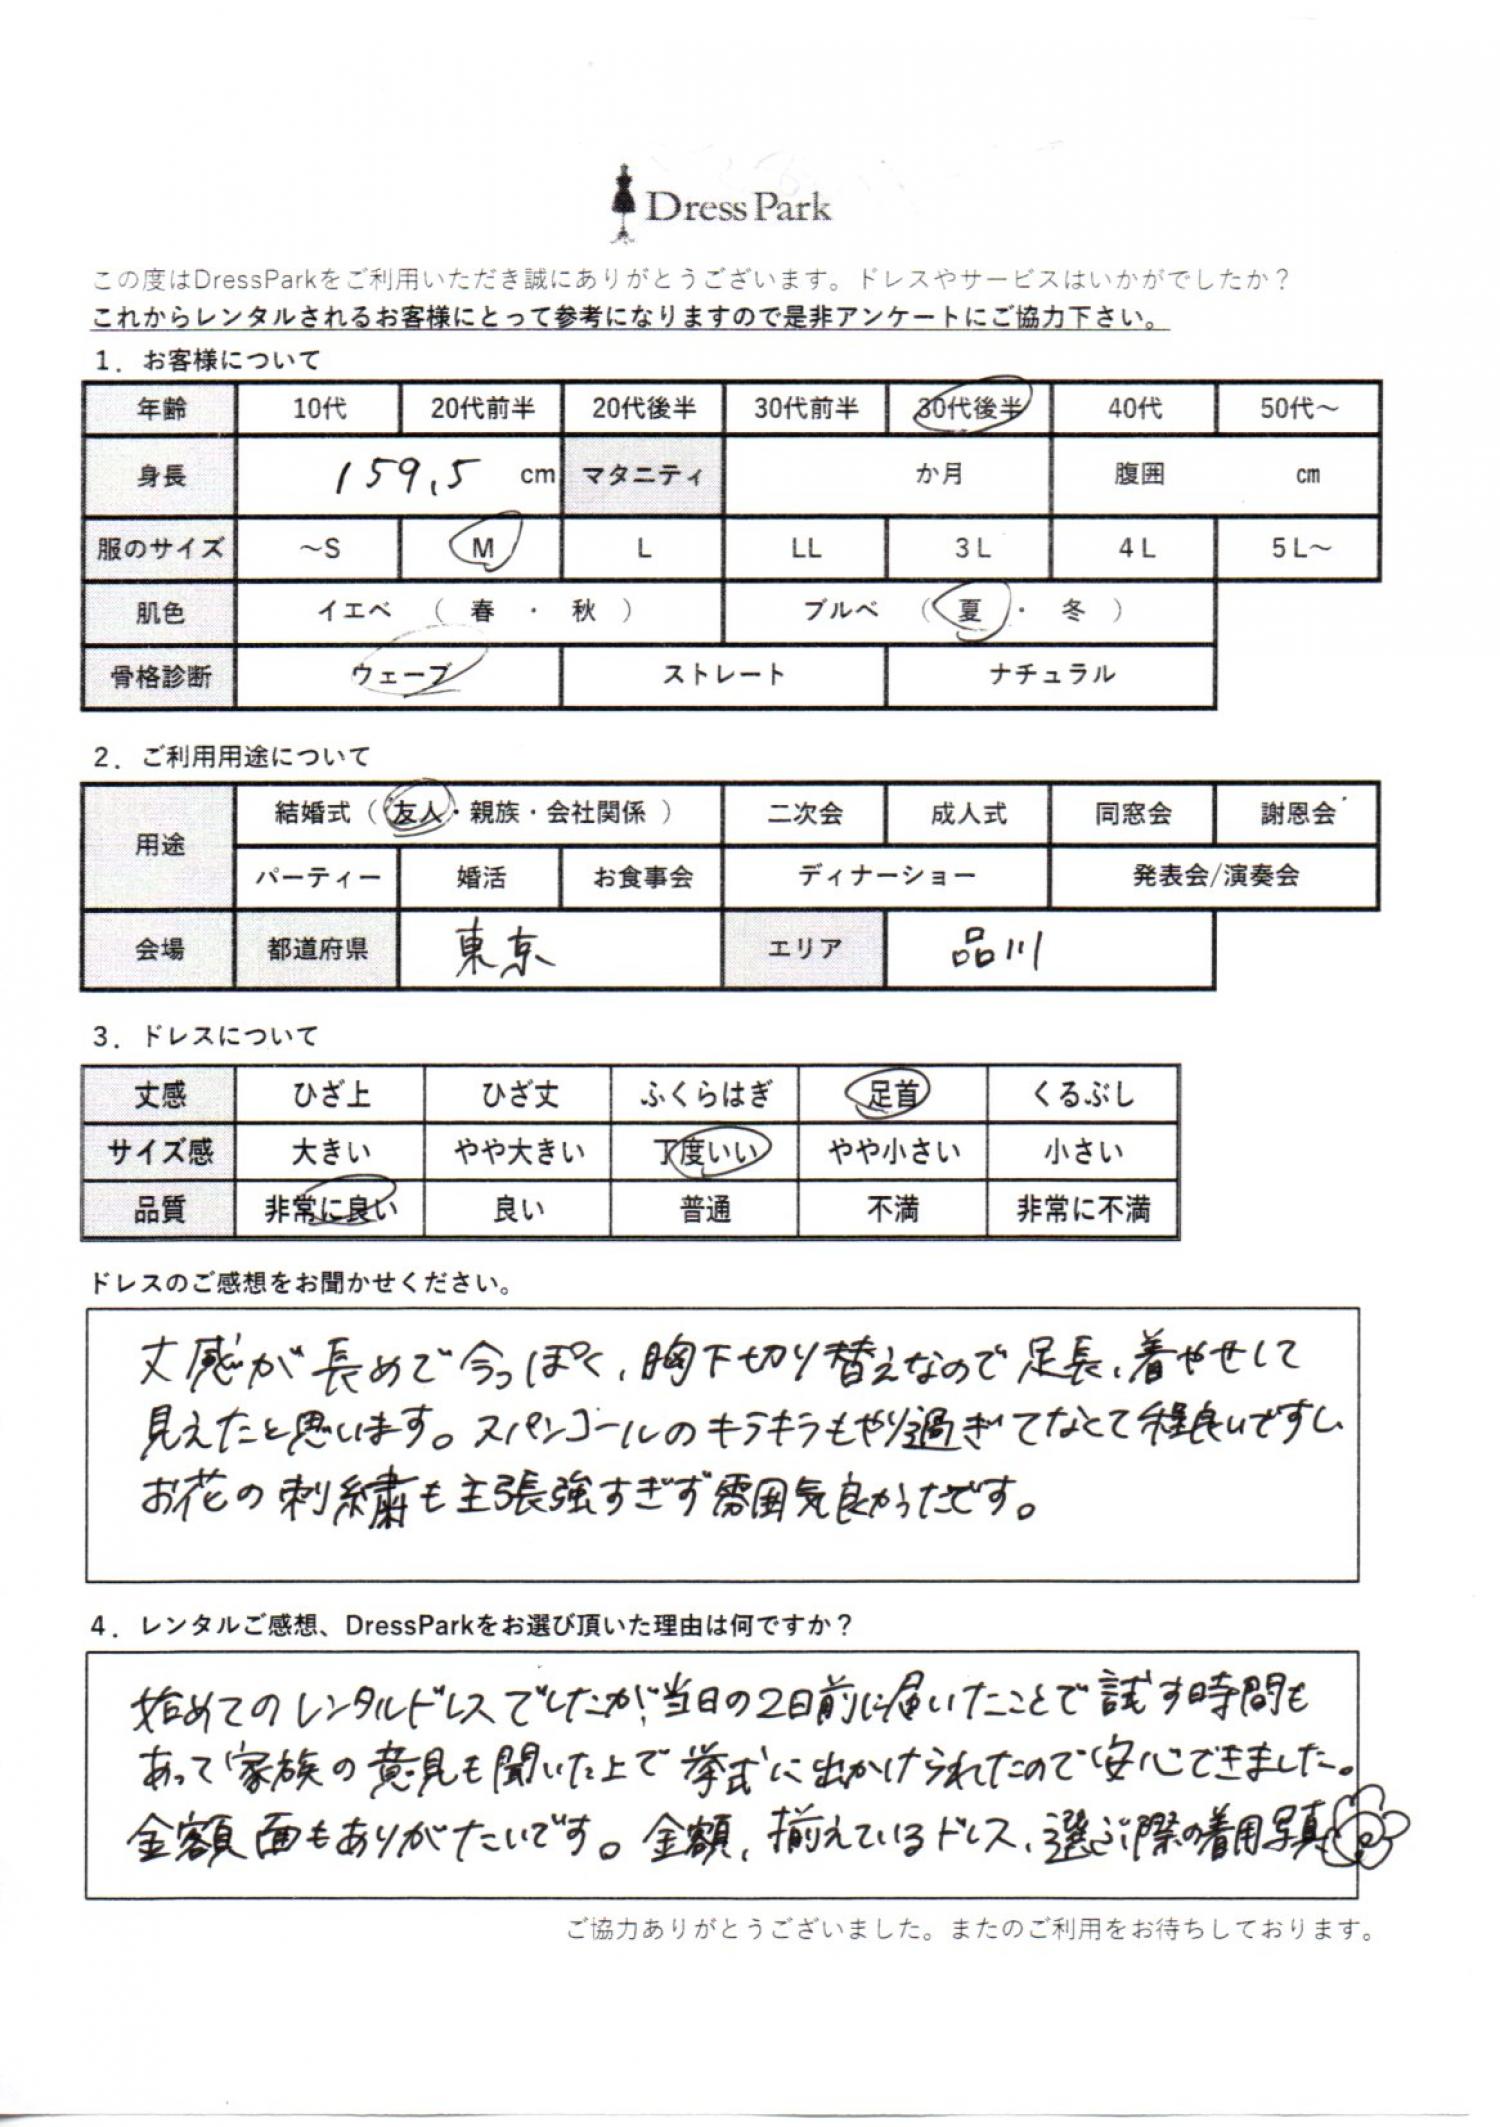 Dress Park
この度はDressParkをご利用いただき誠にありがとうございます。ドレスやサービスはいかがでしたか？
これからレンタルされるお客様にとって参考になりますので是非アンケートにご協力下さい。
1．お客様について
年齢 10代 20代前半 20代後半 30代前半 30代後半 40代 50代～
身長 159.5 cm マタニティ か月 腹囲 cm
服のサイズ ～S M L LL 3L 4L 5L～
肌色 イエベ （ 春 ・ 秋 ） ブルベ （ 夏 ・ 冬 ）
骨格診断 ウェーブ ストレート ナチュラル
2．ご利用用途について
用途 結婚式（ 友人・親族・会社関係 ） 二次会 成人式 同窓会 謝恩会
パーティー 婚活 お食事会 ディナーショー 発表会/演奏会
会場 都道府県 東京 エリア 品川
3．ドレスについて
丈感 ひざ上 ひざ丈 ふくらはぎ 足首 くるぶし
サイズ感 大きい やや大きい 丁度いい やや小さい 小さい
品質 非常に良い 良い 普通 不満 非常に不満
ドレスのご感想をお聞かせください。
丈感が長めで今っぽく、胸下切り替えなので足長、着やせして
見えたと思います。スパンコールのキラキラもやり過ぎてなくて程良いですし
お花の刺繍も主張強すぎず雰囲気良かったです。
4．レンタルご感想、DressParkをお選び頂いた理由は何ですか？
始めてのレンタルドレスでしたが、当日の2日前に届いたことで試す時間も
あって家族の意見も聞いた上で挙式に出かけられたので安心できました。
金額面もありがたいです。金額、揃えているドレス、選ぶ際の着用写真
ご協力ありがとうございました。またのご利用をお待ちしております。